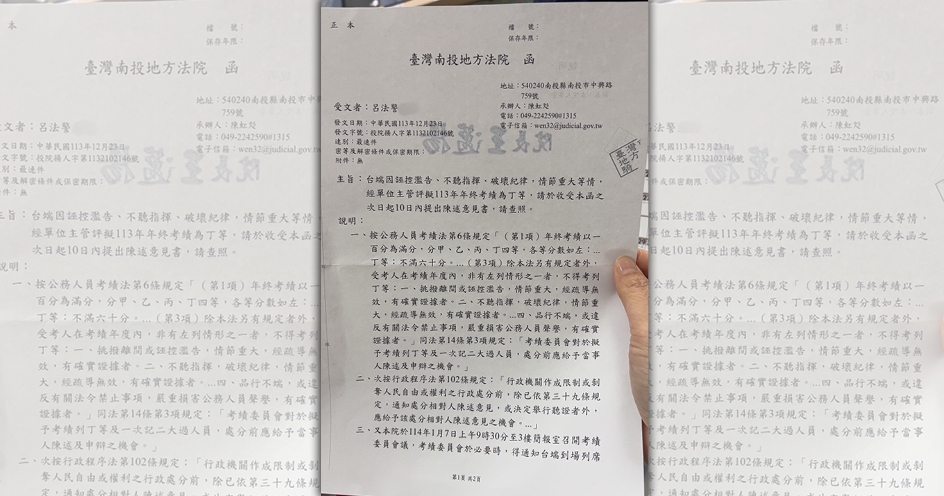 正 本
檔 號：
保存年限：
臺灣南投地方法院 函
地址：540240南投縣南投市中興路
759號
承辦人：陳虹彣
電話：049-2242590#1315
電子信箱：wen32@judicial.gov.tw
受文者：呂法警
發文日期：中華民國113年12月23日
發文字號：投院揚人字第1132102146號
速別：最速件
密等及解密條件或保密期限：
附件：無
主旨：台端因誣控濫告、不聽指揮、破壞紀律，情節重大等情，
經單位主管評擬113年年終考績為丁等，請於收受本函之
次日起10日內提出陳述意見書，請查照。
說明：
一、按公務人員考績法第6條規定「（第1項）年終考績以一
百分為滿分，分甲、乙、丙、丁四等，各等分數如左：…
丁等：不滿六十分。…（第3項）除本法另有規定者外，
受考人在考績年度內，非有左列情形之一者，不得考列
丁等：一、挑撥離間或誣控濫告，情節重大，經疏導無
效，有確實證據者。二、不聽指揮，破壞紀律，情節重
大，經疏導無效，有確實證據者。…四、品行不端，或違
反有關法令禁止事項，嚴重損害公務人員聲譽，有確實
證據者。」同法第14條第3項規定：「考績委員會對於擬
予考績列丁等及一次記二大過人員，處分前應給予當事
人陳述及申辯之機會。」
二、次按行政程序法第102條規定：「行政機關作成限制或剝
奪人民自由或權利之行政處分前，除已依第三十九條規
定，通知處分相對人陳述意見，或決定舉行聽證者外，
應給予該處分相對人陳述意見之機會。…」
三、又本院於114年1月7日上午9時30分至3樓簡報室召開考績
委員會會議，考績委員會於必要時，得通知台端到場列席
第1頁 共2頁